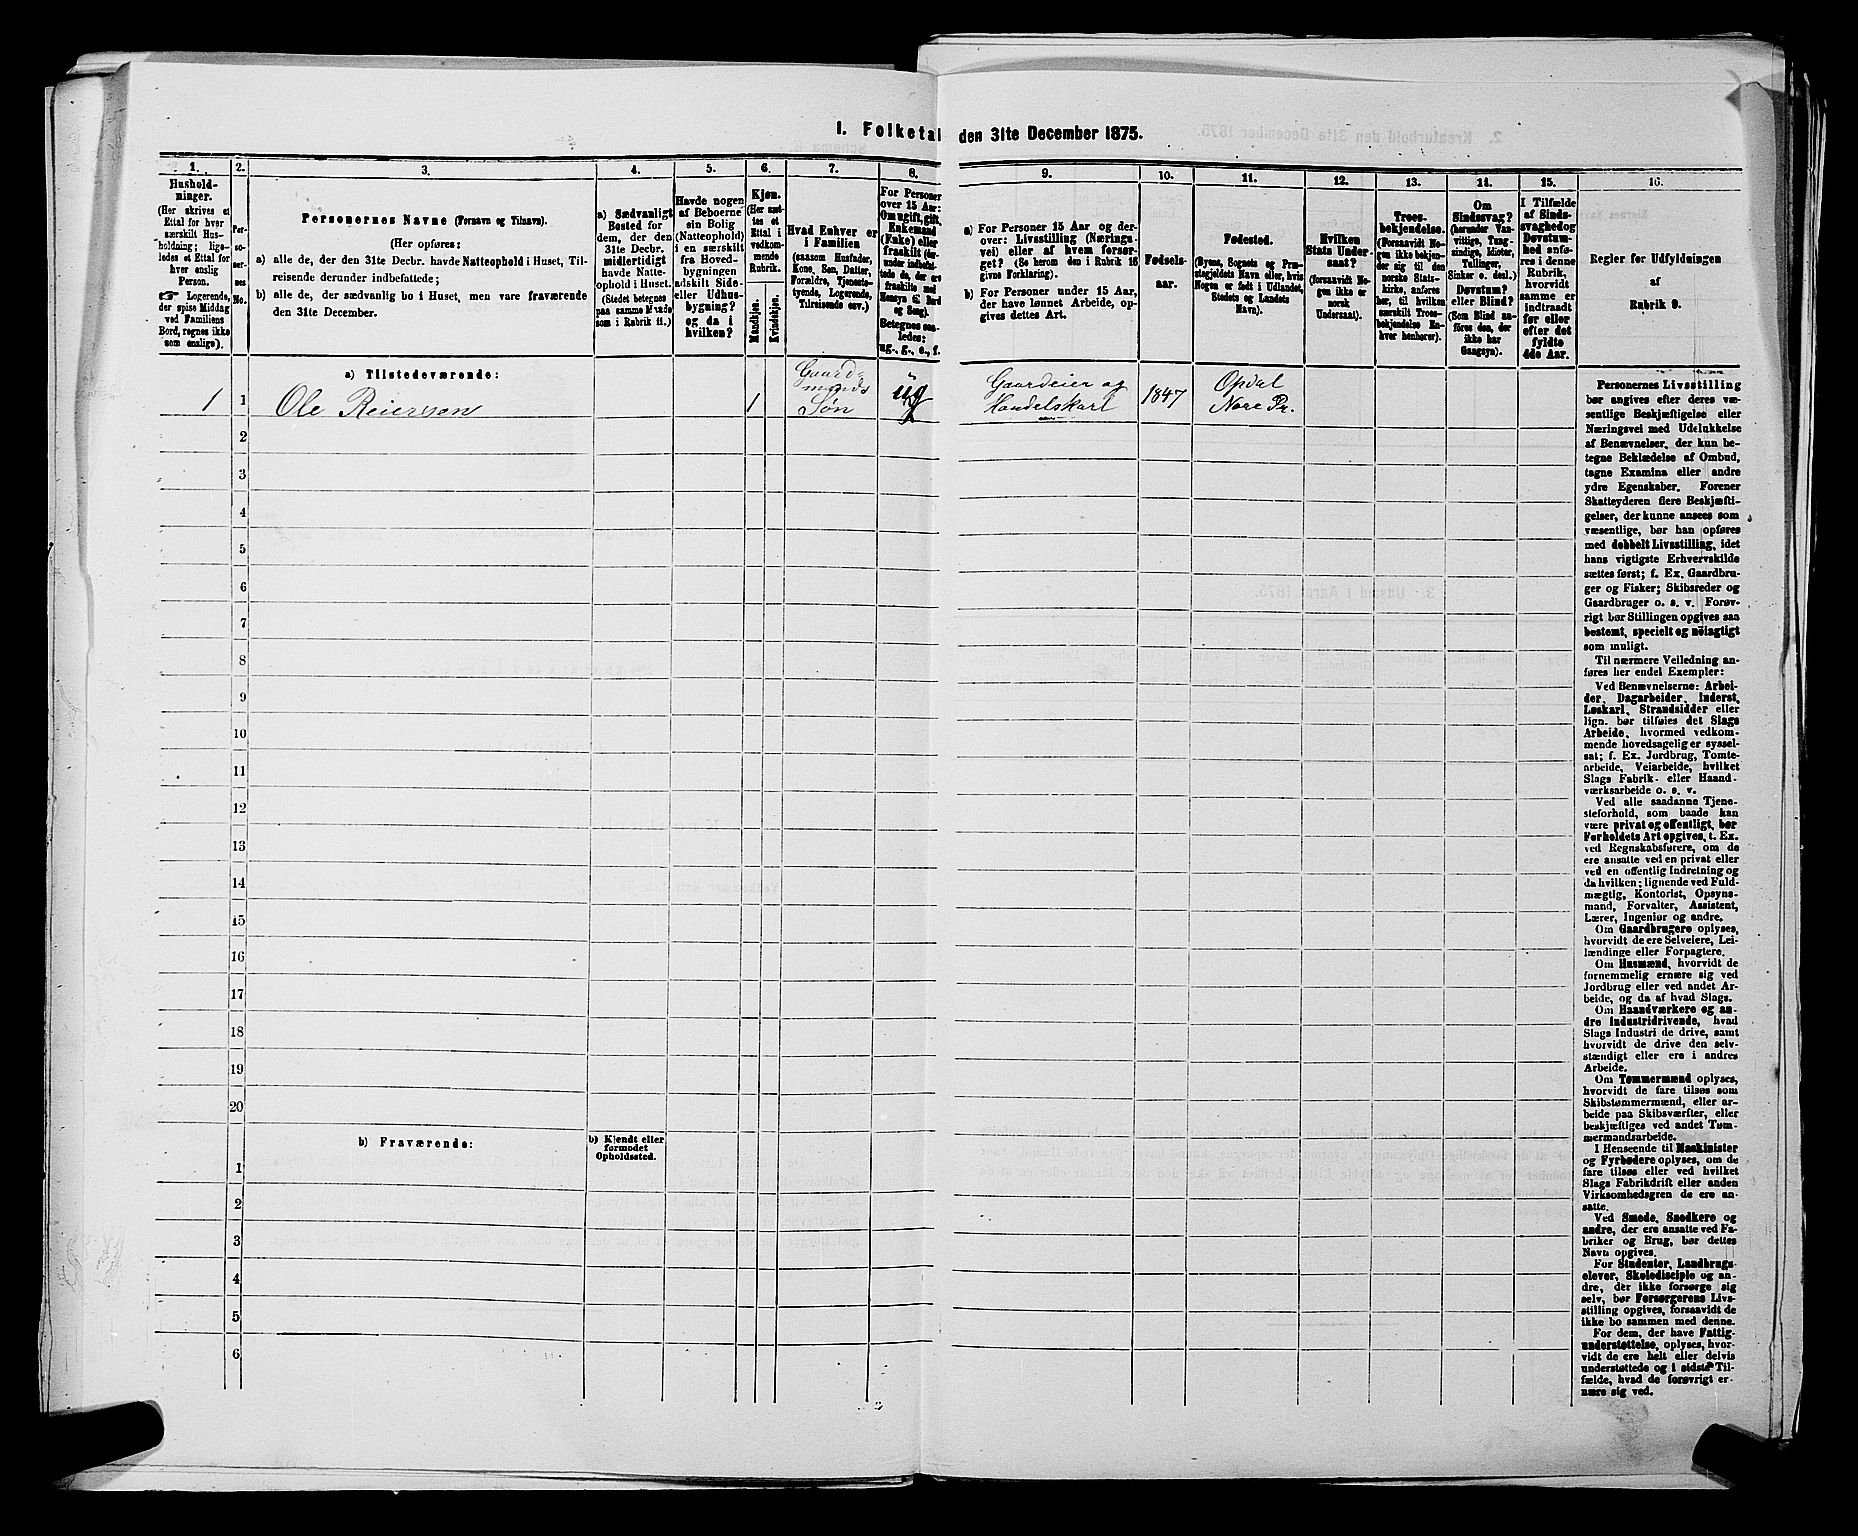 I. Folketal den 31te December 1875.
1.
Hushold-
ninger.
(Her skrives et
Ettal for hver
særskilt Hus-
holdning; lige-
ledes et Ettal for
hver enslig
Person.
Logerende,
der spise Middag
ved Familiens
Bord, regnes ikke
som enslige).
2.
Per-
so-
ner-
nes
No.
3.
Personernes Navne (Fornavn og Tilnavn).
(Her opføres:
a) alle de, der den 31te Decbr. havde Natteophold i Huset, Til-
reisende derunder indbefattede;
b) alle de, der sædvanlig bo i Huset, men vare fraværende
den 31te December.
4.
a) Sædvanligt
Bosted for
dem, der den
31te Decbr.
midlertidigt
havde Natte-
ophold i Huset.
(Stedet betegnes
paa samme Maade
som i Rubrik 11.)
5.
Havde nogen
af Beboerne
sin Bolig
(Natteophold)
i en særskilt
fra Hoved-
bygningen
adskilt Side-
eller Udhus-
bygning?
og da i
hvilken?
6.
Kjøn.
(Her sæt-
tes et
Ettal i
vedkom-
mende
Rubrik.
Mandkjøn.
Kvindekjøn.
7.
Hvad Enhver er
i Familien
(saasom Husfader,
Kone, Søn, Datter,
Forældre, Tjeneste-
tyende, Logerende,
Tilreisende osv.)
8.
For Personer
over 15 Aar:
Om ugift, gift,
Enkemand
(Enke) eller
fraskilt (der-
under indbefat-
tede de, der ere
fraskilte med
Hensyn til Bord
og Seng).
Betegnes saa-
ledes:
ug., g., e., f.
9.
a) For Personer 15 Aar og der-
over: Livsstilling (Nærings-
vei) eller af hvem forsør-
get? (Se herom den i Rubrik 16
givne Forklaring).
b) For Personer under 15 Aar,
der have lønnet Arbeide, op-
gives dettes Art.
10.
Fødsels-
aar.
11.
Fødested.
(Byens, Sognets og Præ-
stegjeldets Navn eller, hvis
Nogen er født i Udlandet,
Stedets og Landets
Navn).
12.
Hvilken
Stats Under-
saat?
(forsaavidt No-
gen ikke er
norsk
Undersaat).
13.
Troes-
bekjendelse.
(Forsaavidt No-
gen ikke bekjen-
der sig til den
norske Stats-
kirke, anføres
her, til hvilken
særskilt Troes-
bekjendelse En-
hver henhører).
14.
Om
Sindssvag?
(herunder Van-
vittige, Tung-
sindige, Idioter,
Tullinger,
Sinker o. desl.)
Døvstum?
eller Blind?
(Som Blind an-
føres den, der
ikke har
Gangsyn).
15.
I Tilfælde
af Sinds-
svaghed og
Døvstum-
hed anfø-
res i denne
Rubrik,
hvorvidt
samme er
indtraadt
før eller
efter det
fyldte
4de Aar.
16.
Regler for Udfyldningen
af
Rubrik 9.
a) Tilstedeværende:
1 1 Ole Reierson 1 Gaard-
mands
Søn ug Gaardeier og
Handelskarl 1847 Opdal
Nore Pr.
2
3
4
5
6
7
8
9
10
11
12
13
14
15
16
17
18
19
20
b) Fraværende:
b) Kjendt eller
formodet
Opholdssted.
1
2
3
4
5
6
Personernes Livsstilling
bør angives efter deres væ-
sentlige Beskjæftigelse eller
Næringsvei med Udelukkelse
af Benævnelser, der kun be-
tegne Beklædelse af Ombud,
tagne Examina eller andre
ydre Egenskaber. Forener
Skatteyderen flere Beskjæfti-
gelser, der kunne ansees som
væsentlige, bør han opføres
med dobbelt Livsstilling, idet
hans vigtigste Erhvervskilde
sættes først; f. Ex. Gaardbru-
ger og Fisker; Skibsreder og
Gaardbruger o. s. v. Forøv-
rigt bør Stillingen opgives saa
bestemt, specielt og nøiagtigt
som muligt.
Til nærmere Veiledning an-
føres her endel Exempler:
Ved Benævnelserne: Arbei-
der, Dagarbeider, Inderst,
Løskarl, Strandsidder eller
lign. bør tilføies det Slags
Arbeide, hvormed vedkom-
mende hovedsagelig er syssel-
sat; f. Ex. Jordbrug, Tomte-
arbeide, Veiarbeide, hvilket
Slags Fabrik- eller Haand-
værksarbeide o. s. v.
Ved alle saadanne Tjene-
steforhold, som baade kan
være privat og offentligt, bør
Forholdets Art opgives, t. Ex.
ved Regnskabsførere, om de
ere ansatte ved en privat eller
ved en offentlig Indretning og
da hvilken; lignende ved Fuld-
mægtig, Kontorist, Opsyns-
mand, Forvalter, Assistent,
Lærer, Ingeniør og andre.
Om Gaardbrugere oplyses,
hvorvidt de ere Selveiere, Lei-
lændinge eller Forpagtere.
Om Husmænd, hvorvidt de
fornemmelig ernære sig ved
Jordbrug eller ved andet Ar-
beide, og da af hvad Slags.
Om Haandværkere og an-
dre Industridrivende, hvad
Slags Industri de drive, samt
hvorvidt de drive den selv-
stændigt eller ere i andres
Arbeide.
Om Tømmermænd oplyses,
hvorvidt de fare tilsøs som
Skibstømmermænd, eller ar-
beide paa Skibsværfter, eller
beskjæftiges ved andet Tøm-
mermandsarbeide.
I Henseende til Maskinister
og Fyrbødere oplyses, om de
fare tilsøs eller ved hvilket
Slags Fabrikdrift eller anden
Virksomhedsgren de ere an-
satte.
Ved Smede, Snedkere og
andre, der ere ansatte ved Fa-
briker og Brug, bør dettes
Navn opgives.
For Studenter, Landbrugs-
elever, Skoledisciple og an-
dre, der ikke forsørge sig
selv, bør Forsørgerens Livs-
stilling opgives, forsaavidt de
ikke bo sammen med denne.
For dem, der have Fattig-
understøttelse, oplyses, hvor-
vidt de ere helt eller delvis
understøttede og i sidste Til-
fælde, hvad de forøvrigt er-
nære sig ved.